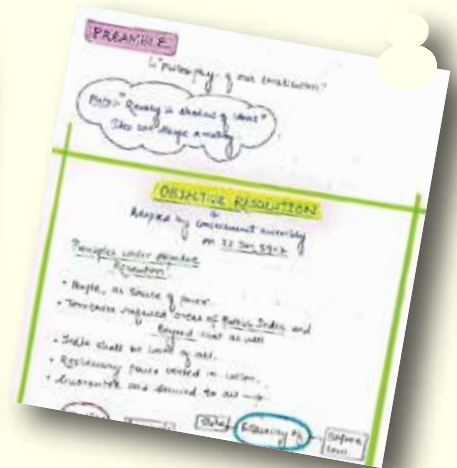 PREAMBLE
↳ "philosophy of our constitution"
Plato:- "Reality is shadow of ideas"
Idea can shape a reality
OBJECTIVE RESOLUTION
Adopted by constituent assembly
on 22 Jan 1947
Principles under objective
Resolution
• People, as source of power.
• Territories required areas of British India and
Beyond that as well
• India shall be of all.
• Residuary power vested in union.
• Guarantee and secured to all →
State
Equality of
Before
law